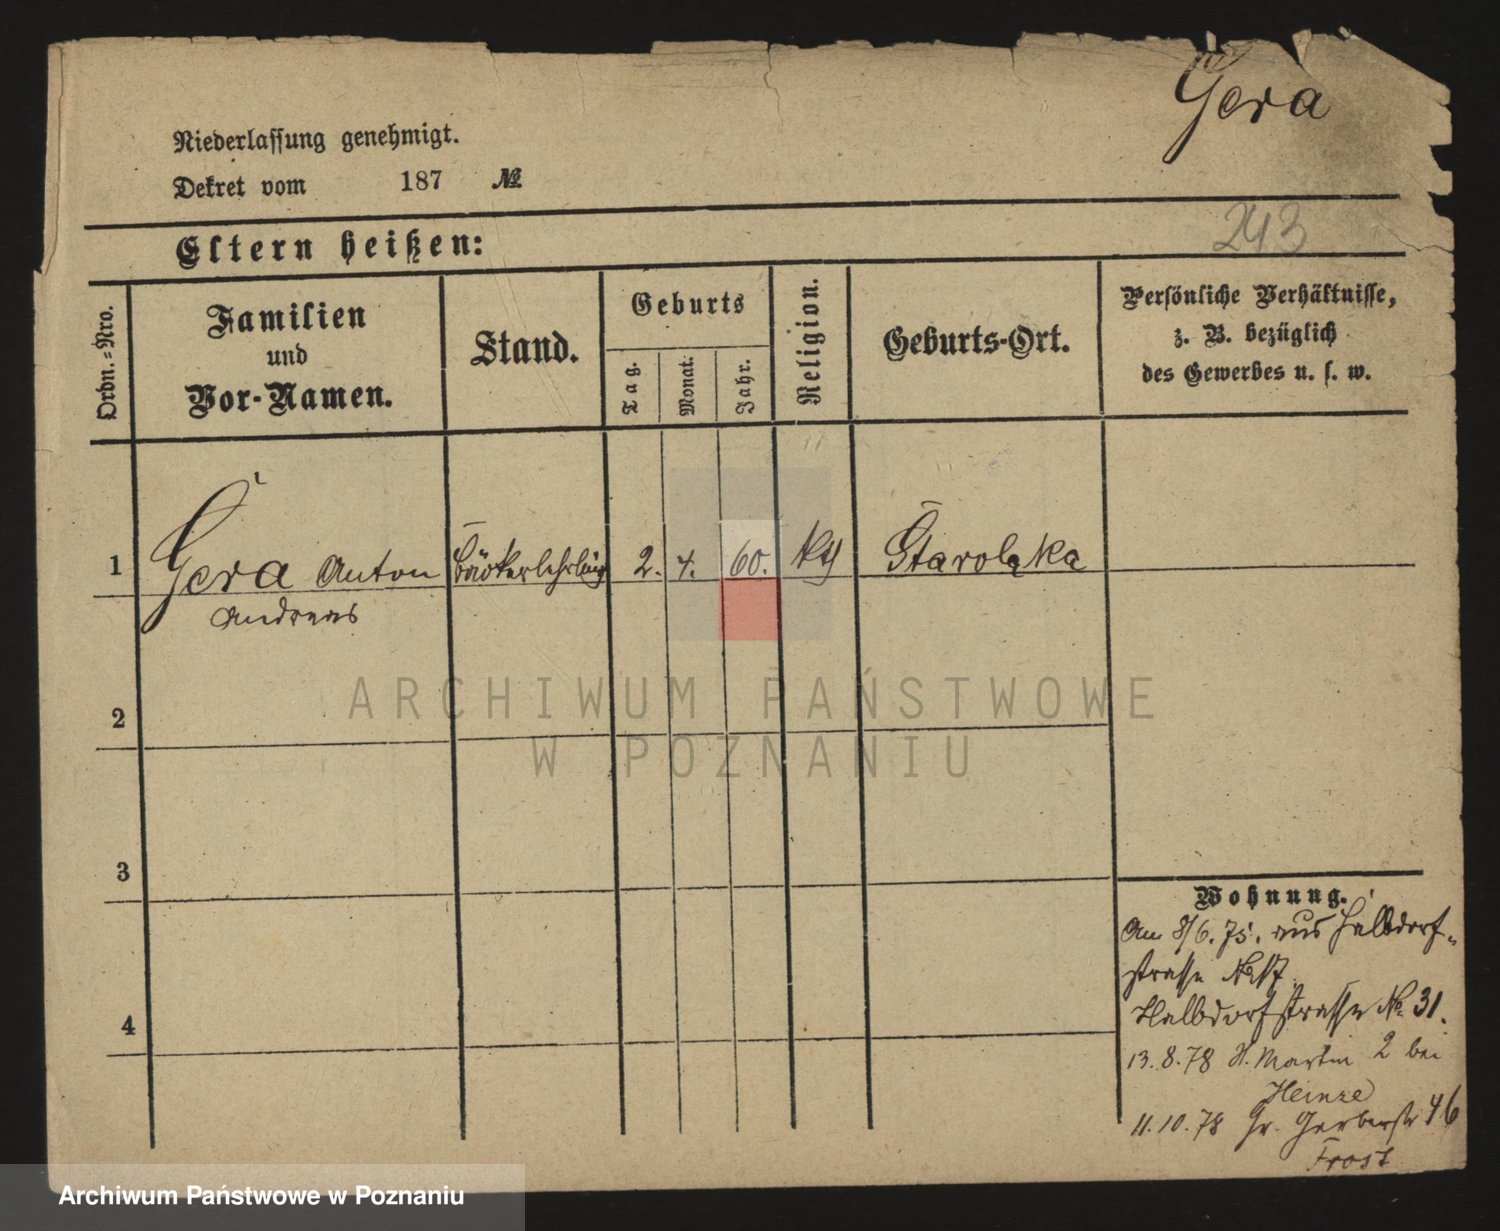 Gera
Niederlassung genehmigt.
Dekret vom 187 №
243
Eltern heißen:
Ordn.=Nro.
Familien
und
Vor-Namen.
Stand.
Geburts
Tag.
Monat.
Jahr.
Religion.
Geburts-Ort.
Persönliche Verhältnisse,
z. B. bezüglich
des Gewerbes u. s. w.
1 Gera Anton Bäckerlehrling 2. 4. 60. kth Starolęka
Andreas
2
3
4
Wohnung.
Am 8/6. 75. aus Halbdorf-
strasse №
Halbdorfstrasse № 31.
13. 8. 78 St. Martin 2 bei
Heinze
11. 10. 78 Gr. Gerberstr 46
Frost
ARCHIWUM PAŃSTWOWE
W POZNANIU
Archiwum Państwowe w Poznaniu